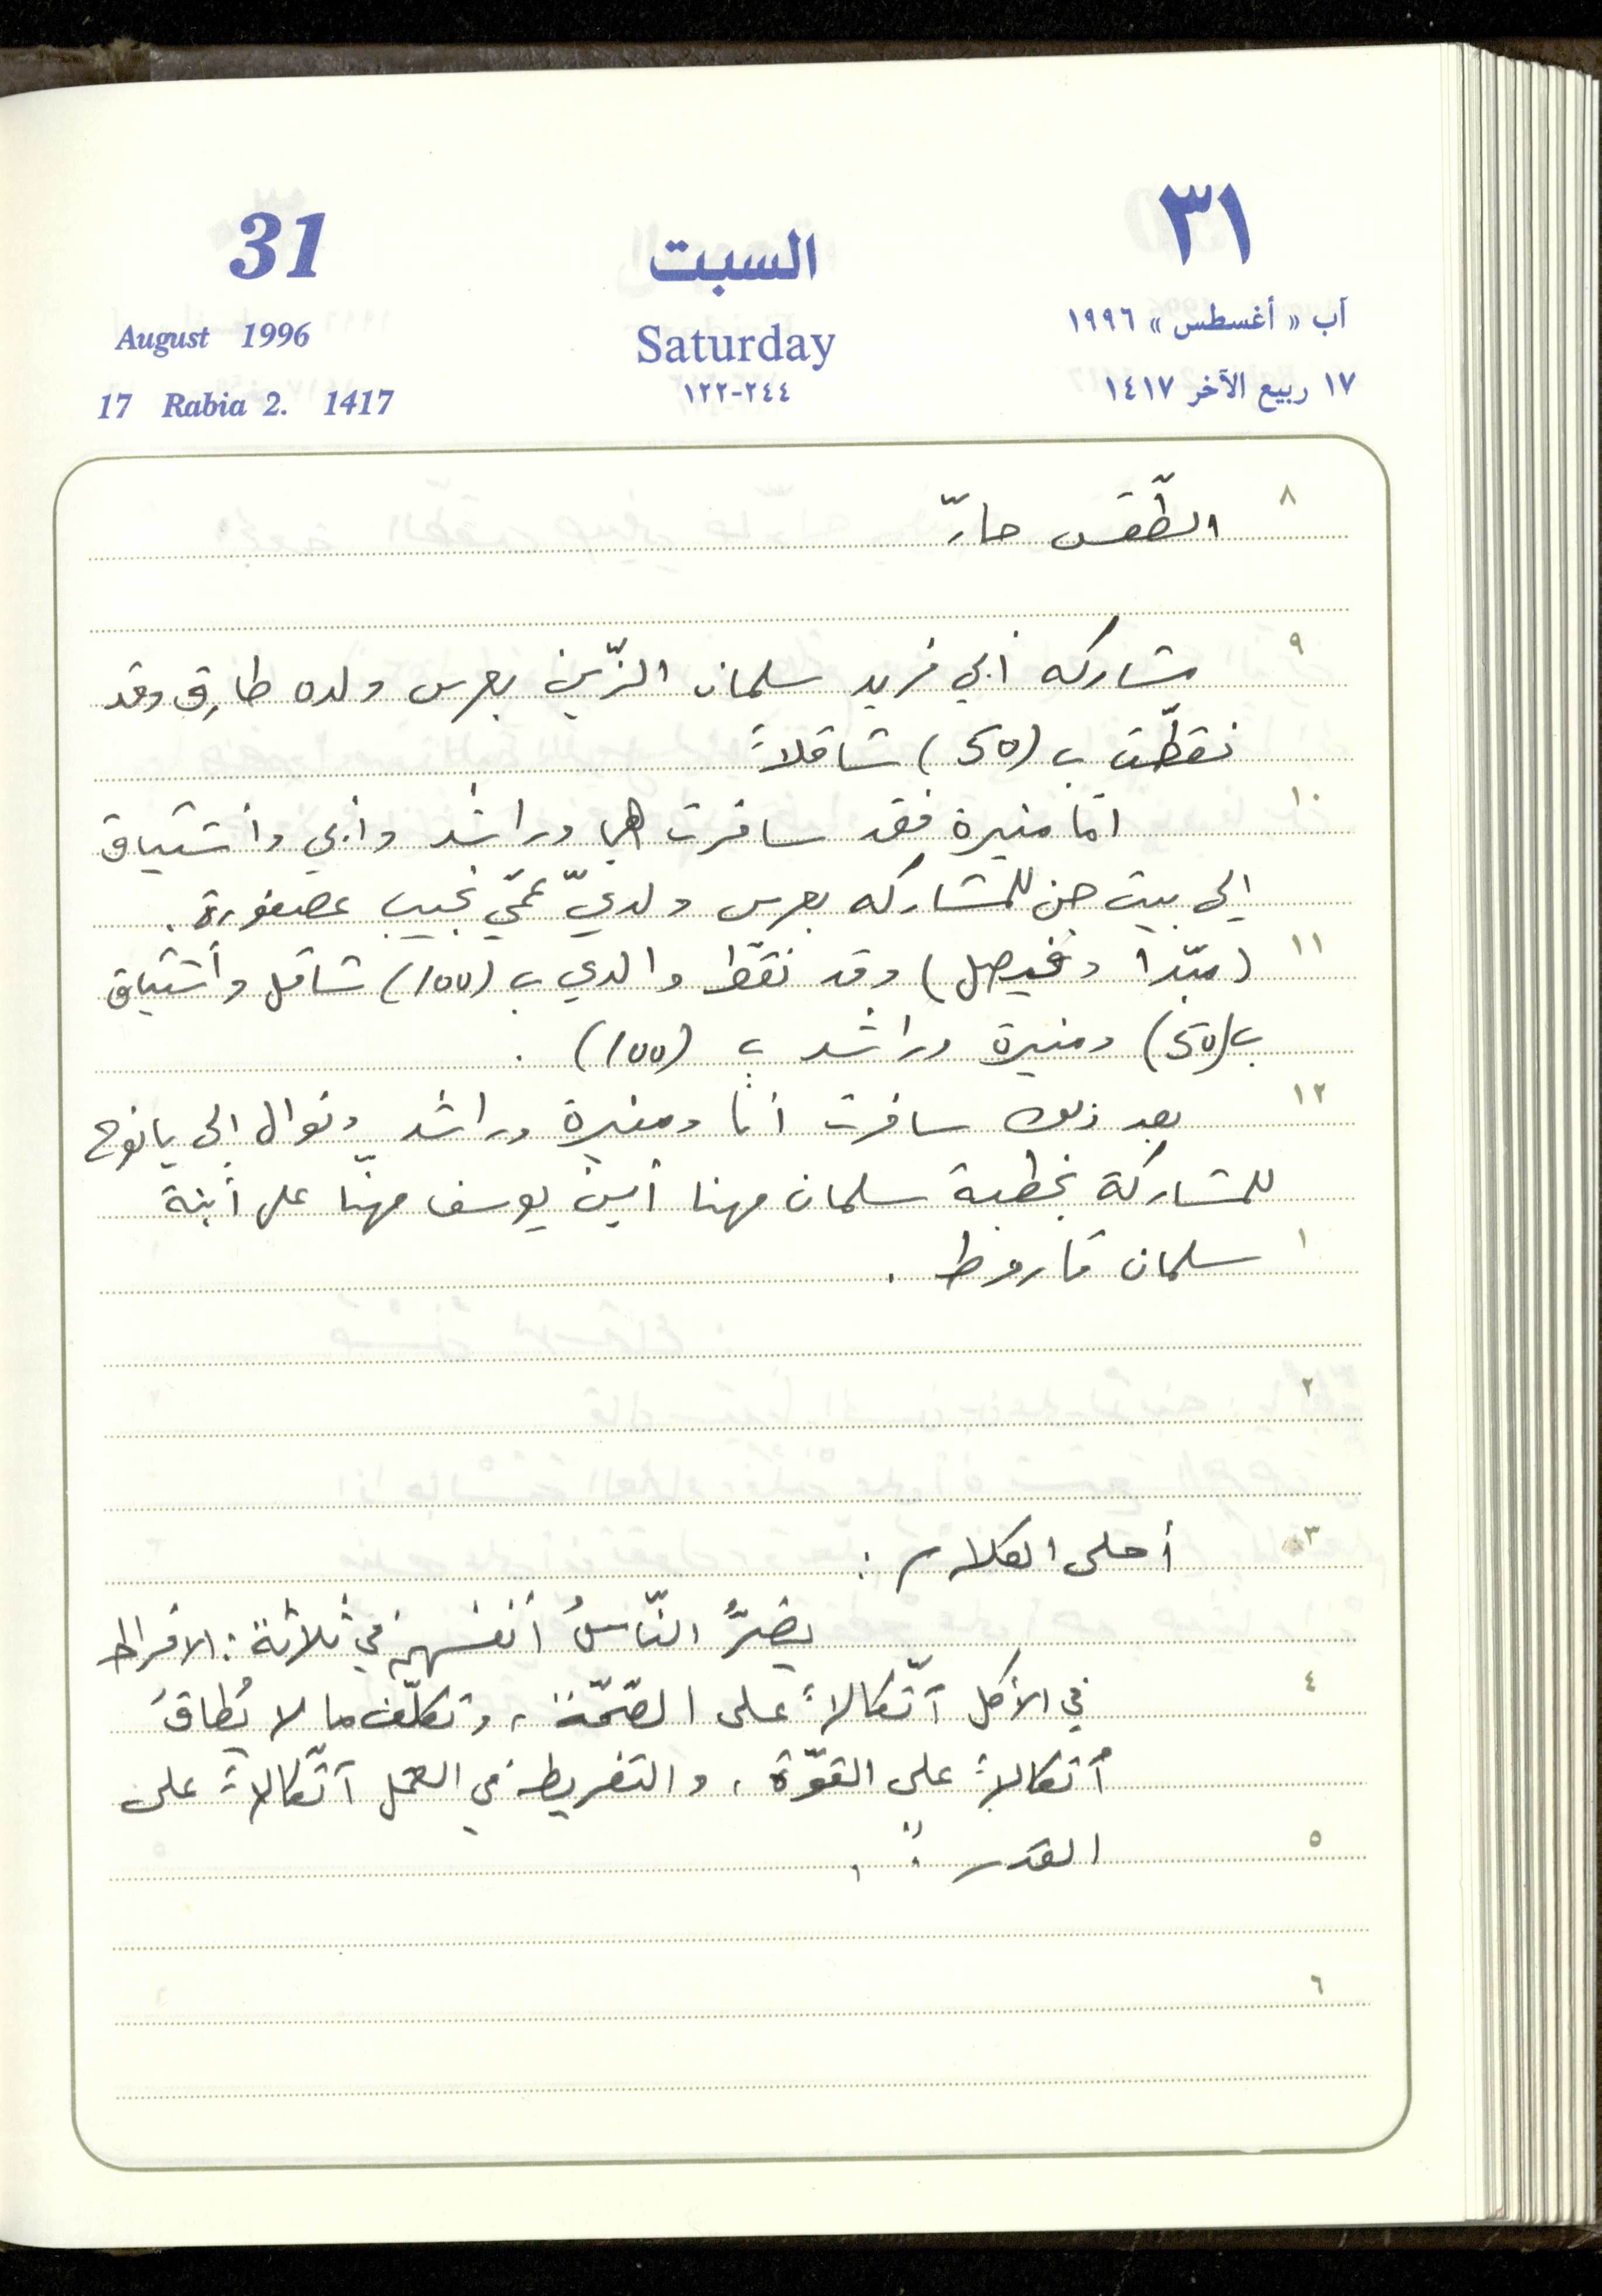 31
السبت
٣١
August 1996
Saturday
آب « أغسطس » ١٩٩٦
17 Rabia 2. 1417
١٢٢-٢٤٤
١٧ ربيع الآخر ١٤١٧
٨
الطّقس حارّ
٩
مشاركه أبي فريد سلمان الزّين بعرس ولده طارق وقد
نقطّت ب (50) شاقلاً
١٠
امّا منيرة فقد سافرت هي وراشد وأبي واشتياق
إلى بيت جن للمشاركه بعرس ولديّ عمّي نجيب عصفورة .
١١
(مبّدا وفيصل) وقد نقّط والدي ب (100) شاقل وأشتياق
ب(50) ومنيرة وراشد ب (100) .
١٢
بعد ذلك سافرت أنا ومنيرة وراشد ونوال إلى يانوح
للمشاركة بخطبة سلمان مهنا أبن يوسف مهنّا على أبنة
١
سلمان قاروط .
٢
٣
أحلى الكلام :
يضرُّ النّاسُ أنفسهم في ثلاثة : الافراط
٤
في الأكل آتّكالاً على الصّحّة ، وتكلّف ما لا يُطاقُ
أتكالاً على القوّة ، والتفريط في العمل آتّكالاً على
٥
القدر " .
٦